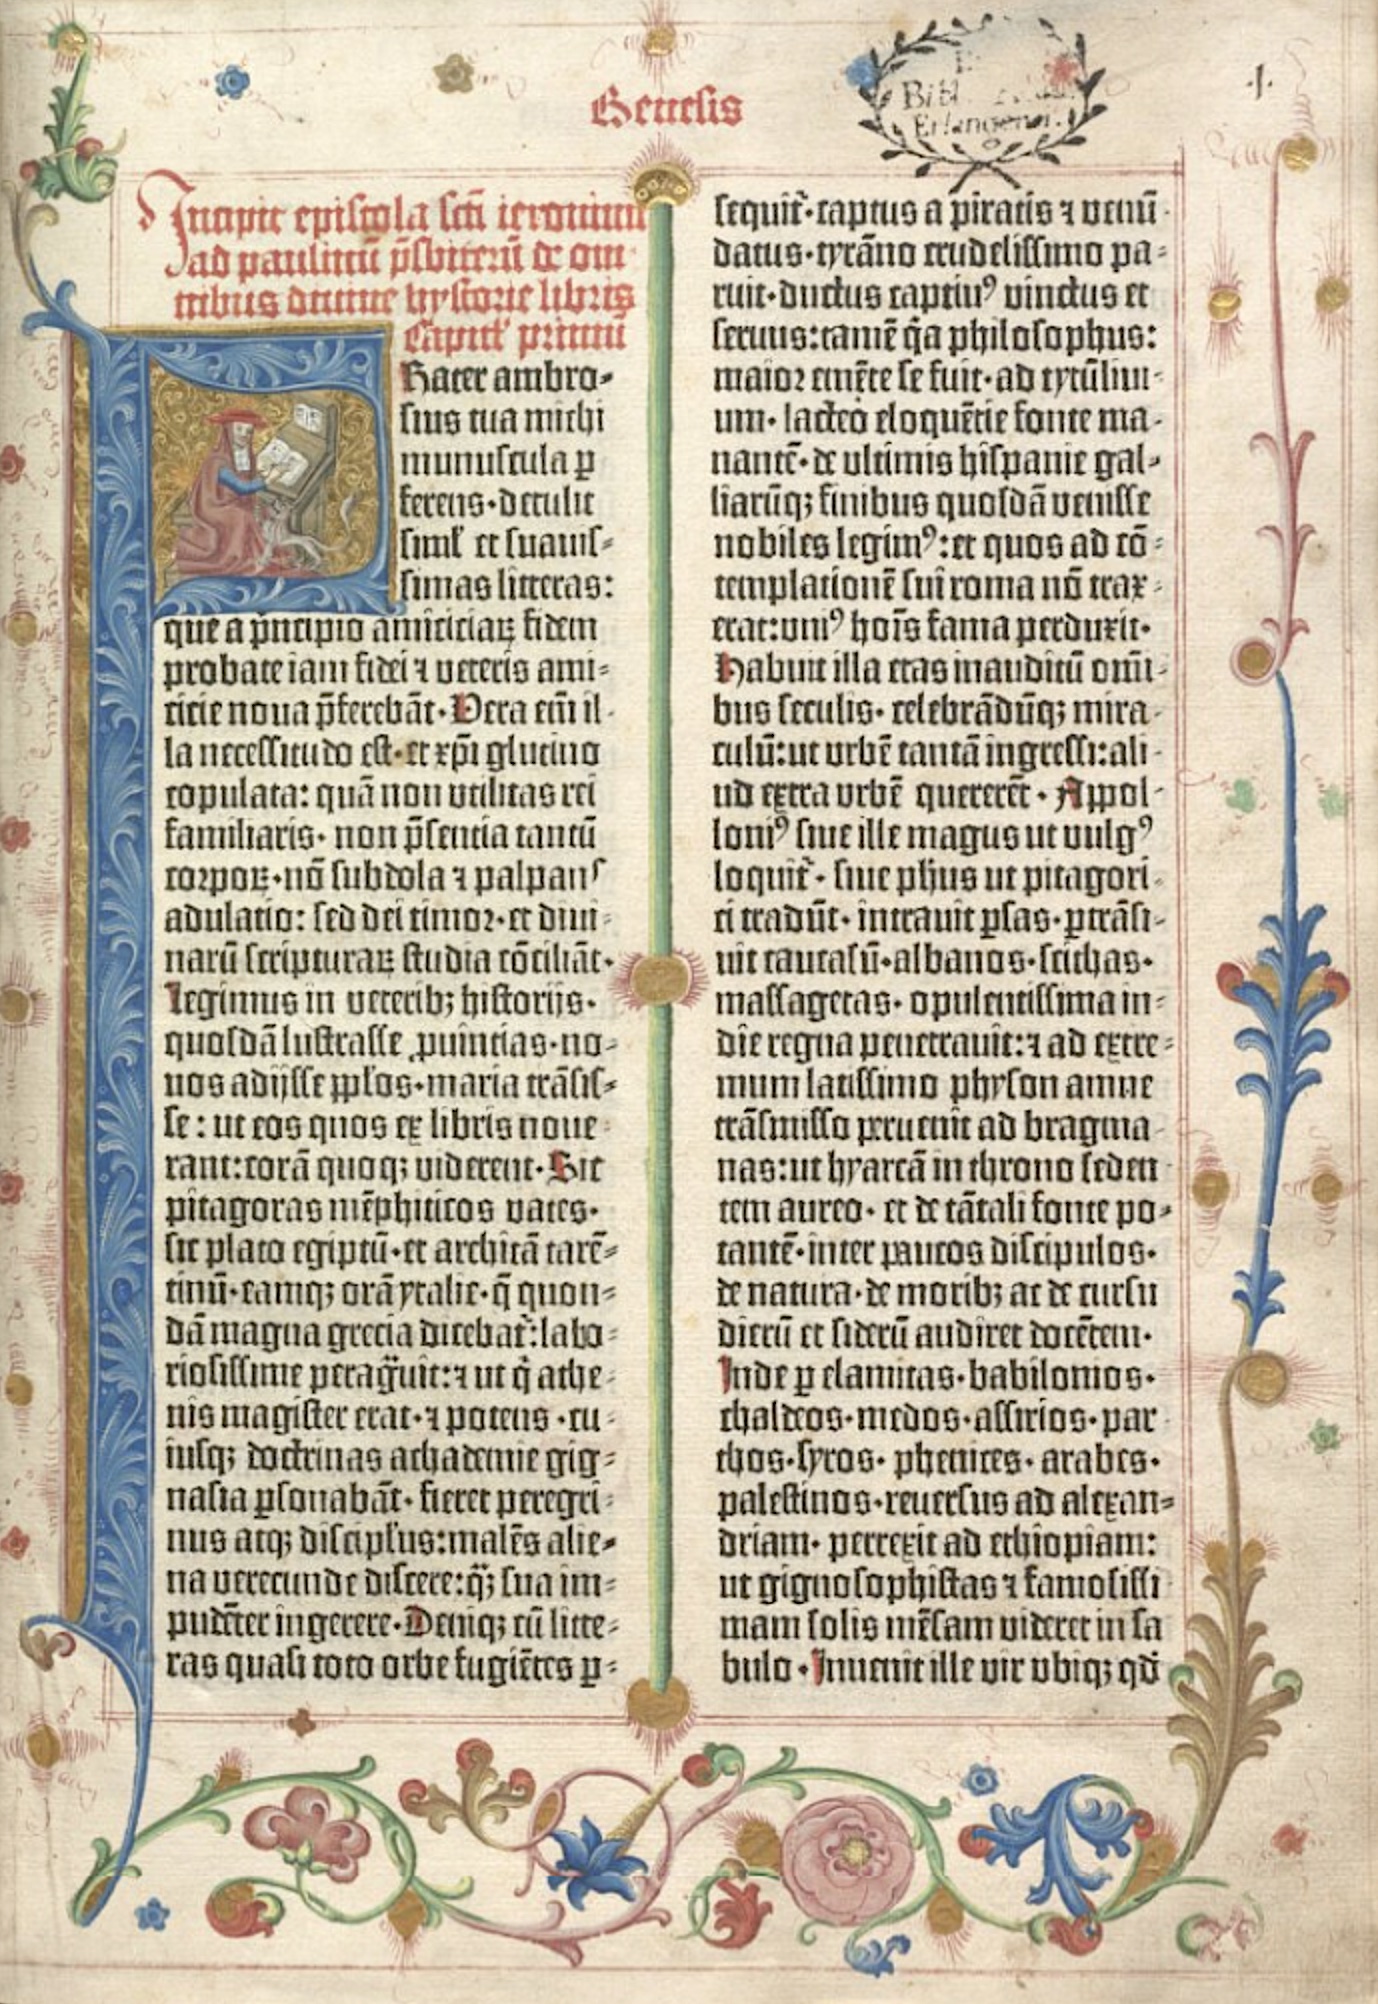 Genesis
.1.
Bibl
Erlangen
Incipit epistola sctī ieronimi
ad paulinū p̄sbiterū de om
nibus diuine hystorie libris
Capitl' primū
Frater ambro-
sius tua michi
munuscula ꝑ
ferens·detulit
simĺ et suauis-
simas litteras:
que a p̄ncipio amiciciaꝝ fidem
probate iam fidei ⁊ veteris ami-
cicie noua p̄ferebāt·Vera em̄ il-
la necessitudo est·et xp̄i glutino
copulata: quā non vtilitas rei
familiaris· non p̄sentia tantū
corpoꝝ·nō subdola ⁊ palpans
adulatio: sed dei timor·et diui-
narū scripturaꝝ studia cōciliāt·
Legimus in veteribꝫ historijs·
quosdā lustrasse ꝓuincias·no-
uos adijsse pp̄los·maria trāsis-
se: ut eos quos ex libris noue-
rant:corā quoqꝫ viderent·Sic
pitagoras mēphiticos vates·
sic plato egiptū·et architā tarē-
tinū·eamqꝫ orā ytalie·q̄ quon-
dā magna grecia dicebat᷑:labo-
riosissime peragͣuit:⁊ ut qͥ athe-
nis magister erat·⁊ potens·cu-
iusqꝫ doctrinas achademie gig-
nasia ꝑsonabāt· fieret peregri-
nus atqꝫ discipl'us:malēs alie-
na verecunde discere:qͣꝫ sua im-
pudēter ingerere·Deniqꝫ cū litte-
ras quasi toto orbe fugiētes ꝑ-
sequit᷑·captus a piratis ⁊ venū-
datus·tyrāno crudelissimo pa-
ruit·ductus captiuꝰ vinctus et
seruus:tamē qͥa philosophus:
maior emēte se fuit·ad tytūliui-
um· lacteo eloquētie fonte ma-
nantē·de vltimis hispanie gal-
liarūqꝫ finibus quosdā venisse
nobiles legimꝰ:et quos ad cō-
templationē sui roma nō trax-
erat:vniꝰ hoīs fama perduxit·
Habuit illa etas inauditū om̄i-
bus seculis· celebrādūqꝫ mira-
culū:ut vrbē tantā ingressi:ali-
ud extra vrbē quererēt· Appol-
loniꝰ siue ille magus ut vulgꝰ
loquit᷑· siue ph̄us ut pitagori-
ci tradūt· intrauit ꝑsas·ꝑtrāsi-
uit caucasū·albanos·scithas·
massagetas· opulentissima in-
die regna penetrauit:⁊ ad extre-
mum latissimo physon amne
trāsmisso peruenit ad bragma-
nas:ut hyarcā in throno seden-
tem aureo· et de tātali fonte po-
tantē·inter paucos discipulos·
de natura·de moribꝫ ac de cursu
dierū et siderū audiret docētem·
Inde ꝑ elamitas·babilonios·
chaldeos·medos·assirios·par
thos·syros· phenices· arabes·
palestinos·reuersus ad alexan-
driam· perrexit ad ethiopiam:
ut gignosophistas ⁊ famosissi-
mam solis mēsam videret in sa
bulo·Inuenit ille vir vbiqꝫ qd̄